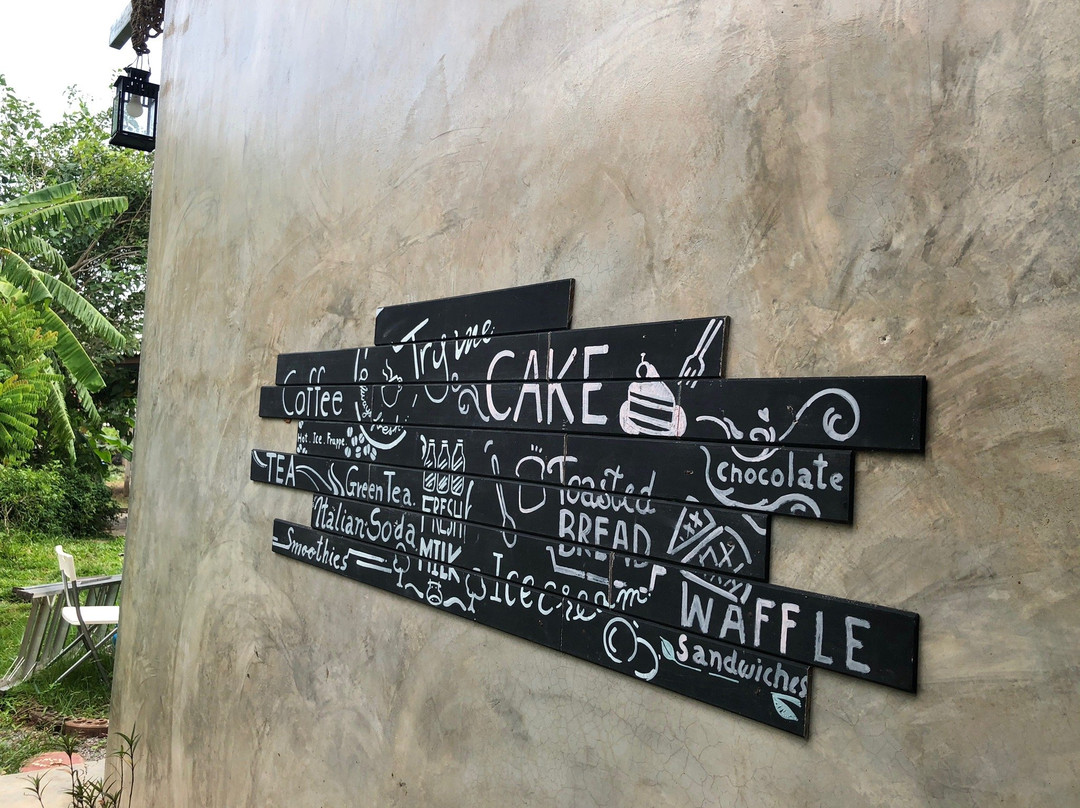 Try me
Coffee
CAKE
Hot . Ice . Frappe
chocolate
TEA
Green Tea
FRESH
MILK
Toasted
BREAD
Italian Soda
Smoothies
Ice cream
WAFFLE
Sandwiches